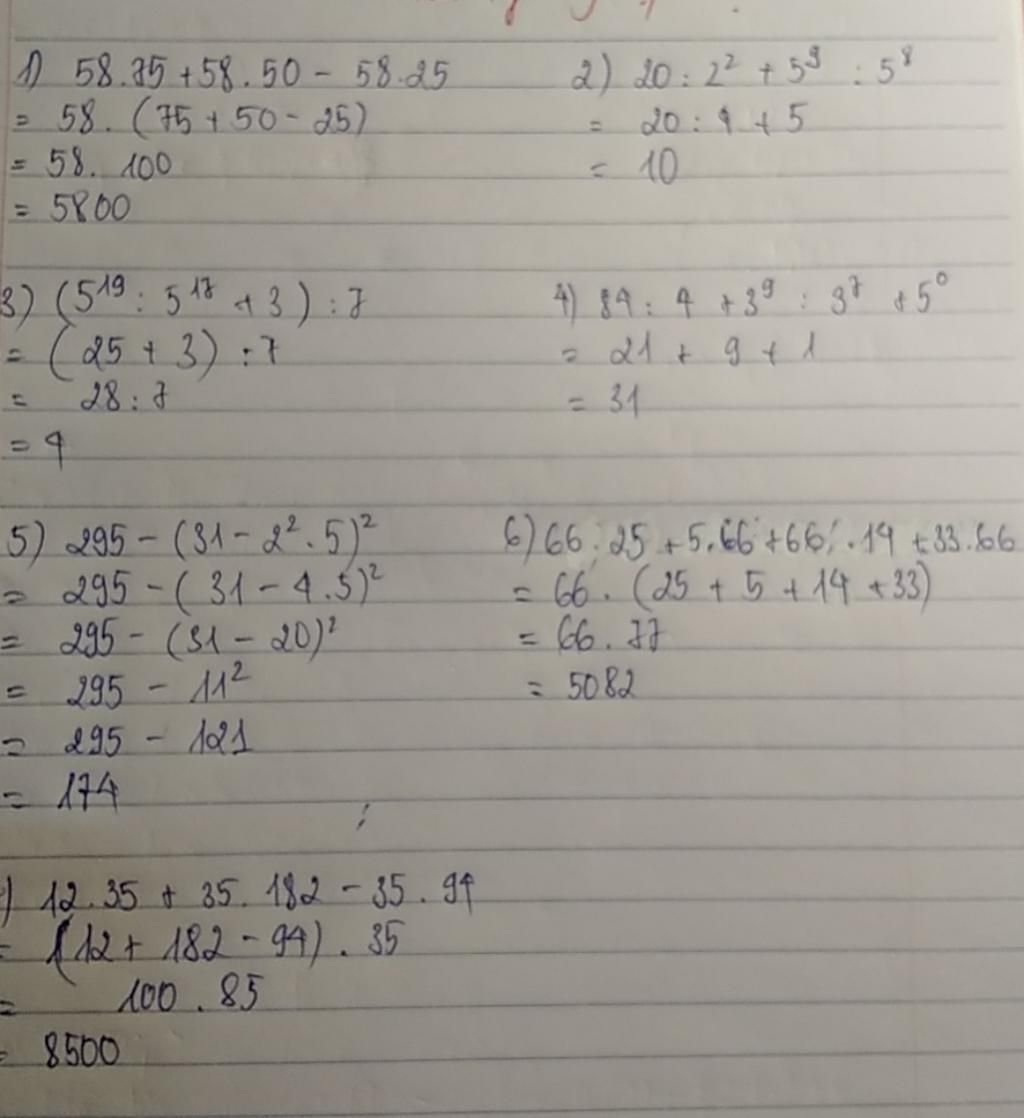 1) 58.75 + 58.50 - 58.25
= 58. (75 + 50 - 25)
= 58. 100
= 5800
2) 20 : 2² + 5⁹ : 5⁸
= 20 : 4 + 5
= 10
3) (5¹⁹ : 5¹⁷ + 3) : 7
= (25 + 3) : 7
= 28 : 7
= 4
4) 84 : 4 + 3⁹ : 3⁷ + 5⁰
= 21 + 9 + 1
= 31
5) 295 - (31 - 2² . 5)²
= 295 - (31 - 4.5)²
= 295 - (31 - 20)²
= 295 - 11²
= 295 - 121
= 174
6) 66 . 25 + 5.66 + 66 . 14 + 33.66
= 66. (25 + 5 + 14 + 33)
= 66. 77
= 5082
) 12.35 + 35. 182 - 35. 94
= (12 + 182 - 94) . 35
= 100 . 85
= 8500